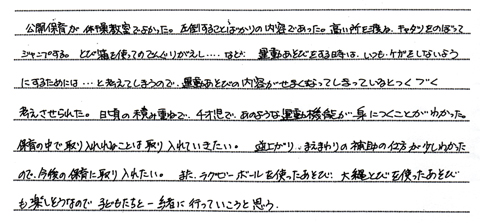 公開保育が体操教室でよかった。左倒することばかりの内容であった。高い所を跳ね、キャタツをのぼって
ジャンプする。とび箱を使ってのでんぐりがえし……など、運動あそびをする時は、いつもケガをしないよう
にするためには…と考えてしまうので、運動あそびの内容がせまくなってしまっているとつくづく
考えさせられた。日頃の積み重ねで、4才児で、あのような運動機能が身につくことがわかった。
保育の中で取り入れられることは取り入れていきたい。逆上がり、まえまわりの補助の仕方が少しわかった
ので、今後の保育に取り入れたい。また、ラグビーボールを使ったあそび、大縄とびを使ったあそび
も楽しそうなので子どもたちと一緒に行っていこうと思う。